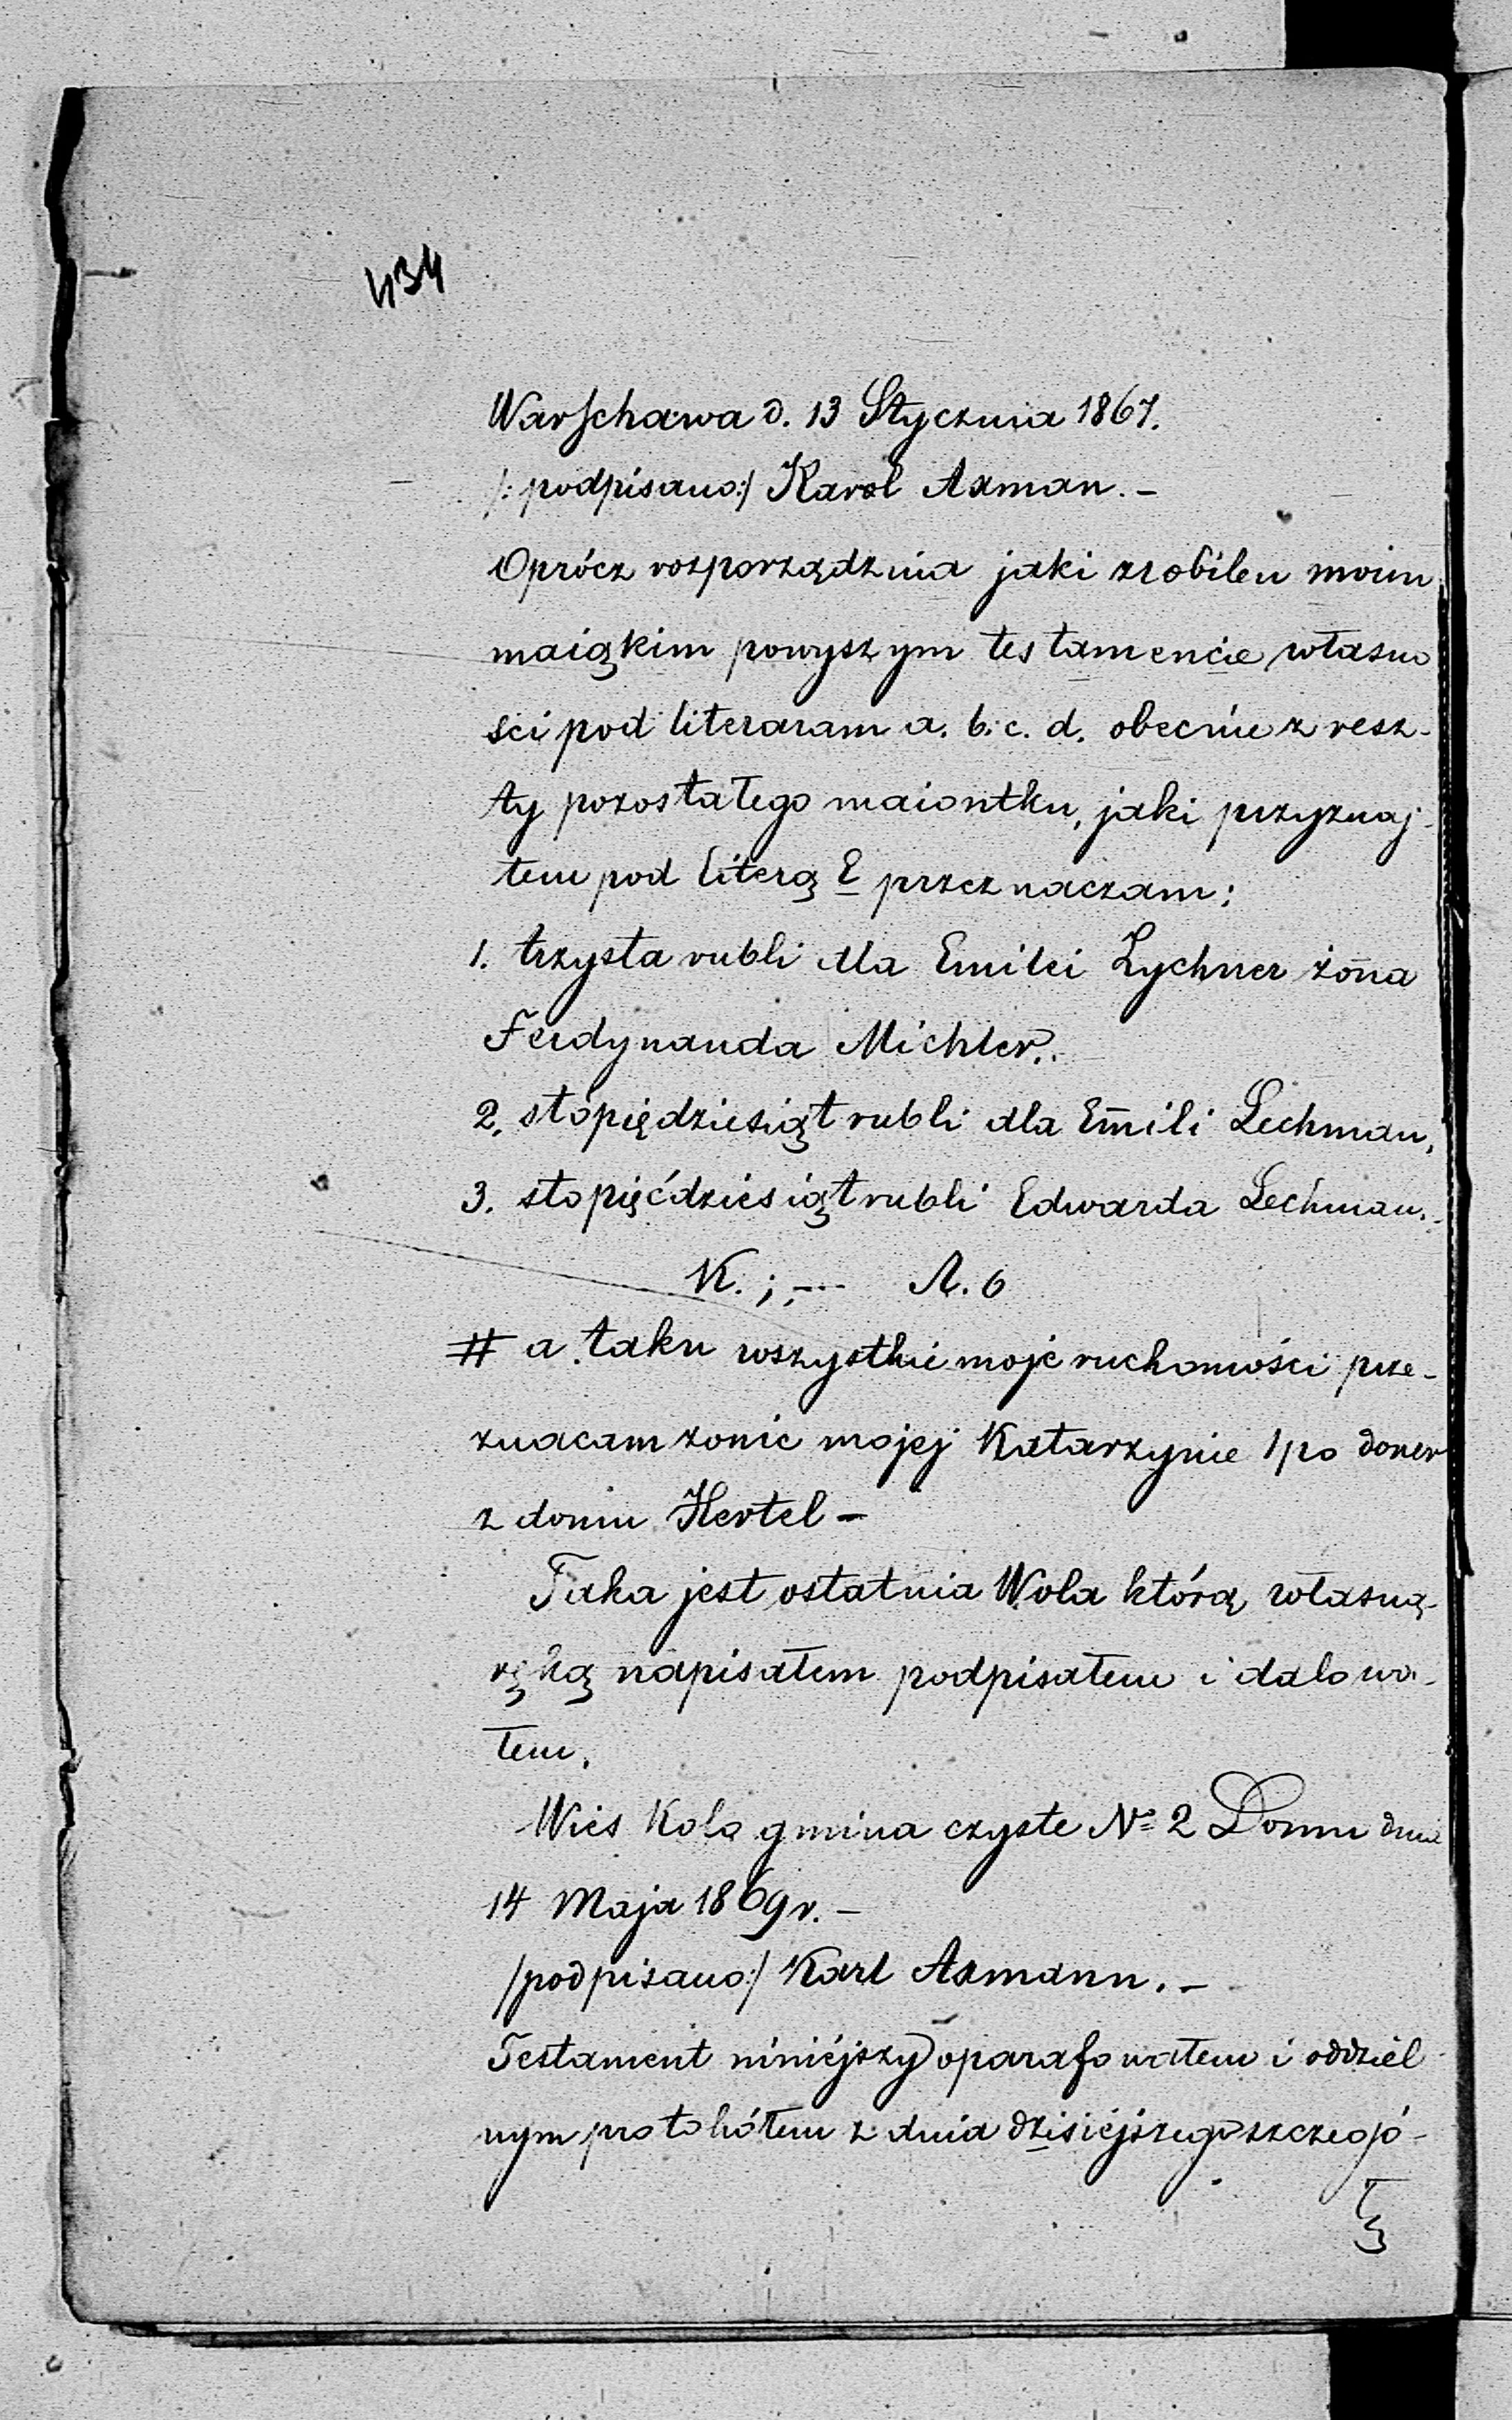 434
Warschawa d. 13 Stycznia 1867.
/: podpisano:/ Karol Axman. -
Oprócz rozporządznia jaki zrobilen moim
maiąkim powyszym testamencie własno
ści pod literaram a. b. c. d. obecnie z resz-
ty pozostałego maiontku, jaki przyznaj-
tem pod literą E przeznaczam:
1. trzysta rubli dla Emilei Lychner żona
Ferdynanda Michler.
2. stopiędziesiąt rubli dla Emili Lechman,
3. stopięćdziesiąt rubli Edwarda Lechman.
K. ; , --- A. 6
# a taku wszystkie moje ruchomości prze-
znacam zonie mojej Katarzynie 1po
z domu Hertel -
Taka jest ostatnia Wola którą własną-
ręką napisałem podpisałem i datowa-
łem.
Wies Koło gmina czyste № 2 Domu dnia
14 Maja 1869 r. -
/podpisano:/ Karl Axmann. -
Testament niniejszy oparafowałem i oddziel
nym protokółem z dnia dzisiejszego szczegó-